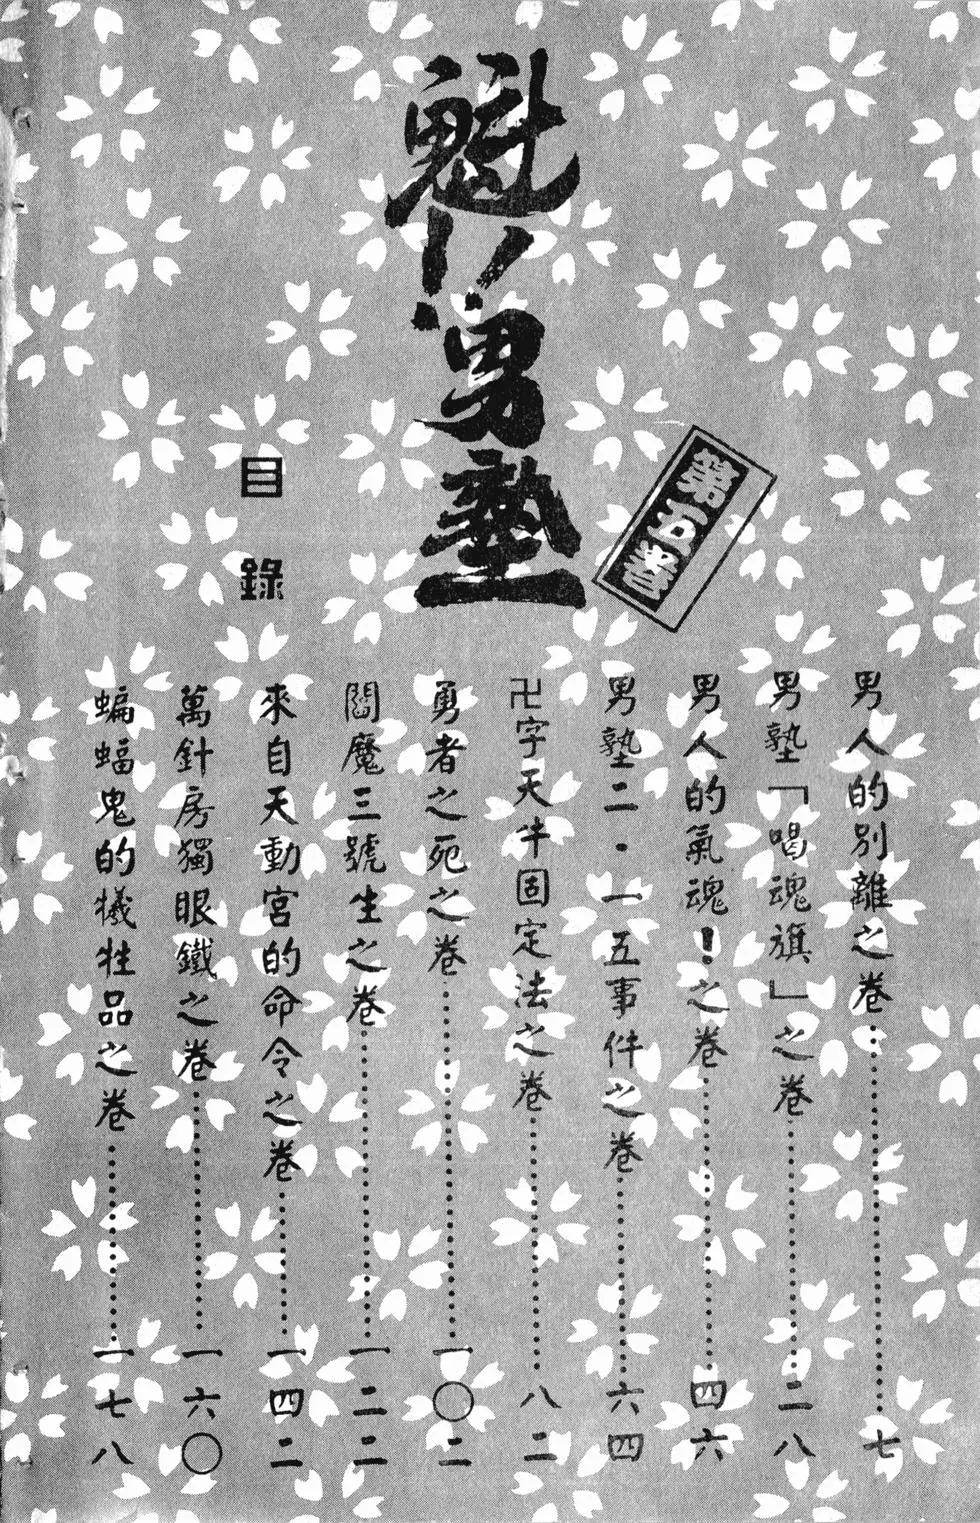 魁!!男塾
第五卷
目錄
男人的別離之卷……七
男塾「喝魂旗」之卷……二八
男人的氣魂!之卷……四六
男塾二·一五事件之卷……六四
卍字天牛固定法之卷……八二
勇者之死之卷……一〇二
閻魔三號生之卷……一二二
來自天動宮的命令之卷……一四二
萬針房獨眼鐵之卷……一六〇
蝙蝠鬼的犧牲品之卷……一七八